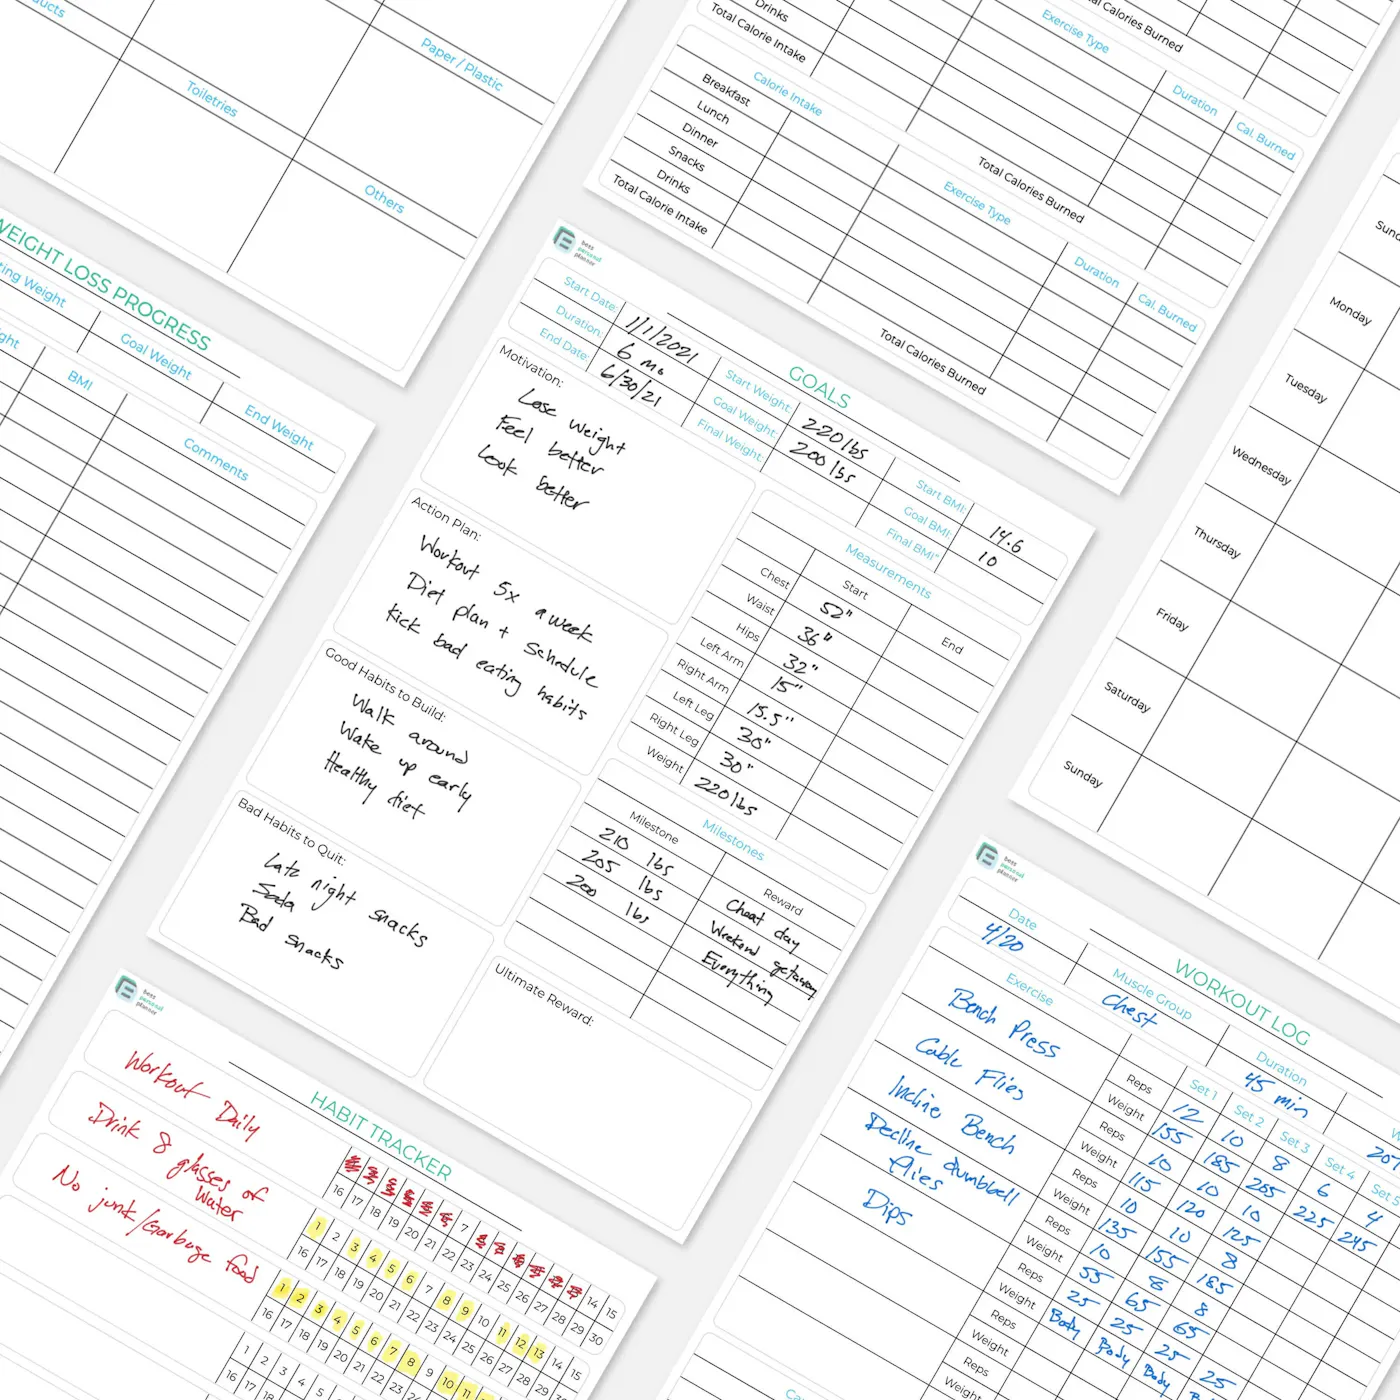 Paper / Plastic
Toiletries
Others
Drinks
Total Calorie Intake
Total Calories Burned
Exercise Type
Duration
Cal. Burned
Calorie Intake
Breakfast
Lunch
Dinner
Snacks
Drinks
Total Calorie Intake
Total Calories Burned
Exercise Type
Duration
Cal. Burned
Total Calories Burned
WEIGHT LOSS PROGRESS
Goal Weight
End Weight
BMI
Comments
best
personal
planner
GOALS
Start Date: 1/1/2021
Duration: 6 mo
End Date: 6/30/21
Start Weight: 220 lbs
Goal Weight: 200 lbs
Final Weight:
Start BMI: 14.6
Goal BMI: 10
Final BMI"
Motivation:
Lose weight
Feel better
Look better
Action Plan:
Workout 5x a week
Diet plan + schedule
Kick bad eating habits
Good Habits to Build:
Walk around
Wake up early
Healthy diet
Bad Habits to Quit:
Late night snacks
Soda
Bad snacks
Measurements
Start End
Chest 52"
Waist 36"
Hips 32"
Left Arm 15"
Right Arm 15.5"
Left Leg 30"
Right Leg 30"
Weight 220 lbs
Milestones
Milestone Reward
210 lbs Cheat day
205 lbs Weekend getaway
200 lbs Everything
Ultimate Reward:
Monday
Tuesday
Wednesday
Thursday
Friday
Saturday
Sunday
best
personal
planner
HABIT TRACKER
Workout Daily
7 14 15
16 17 18 19 20 21 22 23 24 25 26 27 28 29 30
Drink 8 glasses of
Water
1 2 3 4 5 6 7 8 9 10 11 12 13 14 15
16 17 18 19 20 21 22 23 24 25 26 27 28 29 30
No junk/Garbage food
1 2 3 4 5 6 7 8 9 10 11
16 17 18 19 20 21 22 23 24
1 2 3 4 5
16 17 18
best
personal
planner
WORKOUT LOG
Date
4/20
Muscle Group
Chest
Duration
45 min
Exercise
Set 1 Set 2 Set 3 Set 4 Set 5
Bench Press
Reps 12 10 8 6 4
Weight 155 185 205 225 245
Cable Flies
Reps 10 10 10
Weight 115 120 125
Incline Bench
Reps 10 10 8
Weight 135 155 185
Decline dumbbell
flies
Reps 10 8 8
Weight 55 65 65
Dips
Reps 25 25 25
Weight Body Body Body
Reps
Weight
Reps
Weight